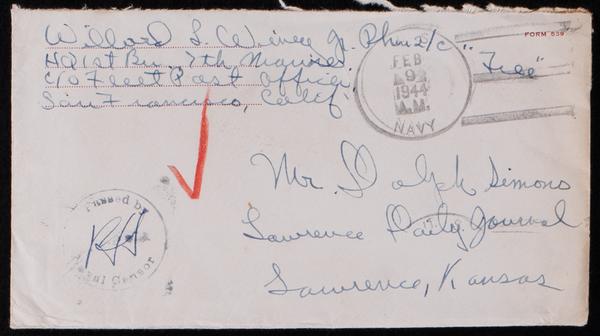 Willard L. Winey Jr. Phm 2/c
HQ 1st Bn. 7th Marines
c/o Fleet Post Office,
San Francisco, Calif.
FORM 539
"Free"
FEB
9
1944
A.M.
NAVY
Mr. Dolph Simons
Lawrence Daily Journal
Lawrence, Kansas
Passed by
Naval Censor